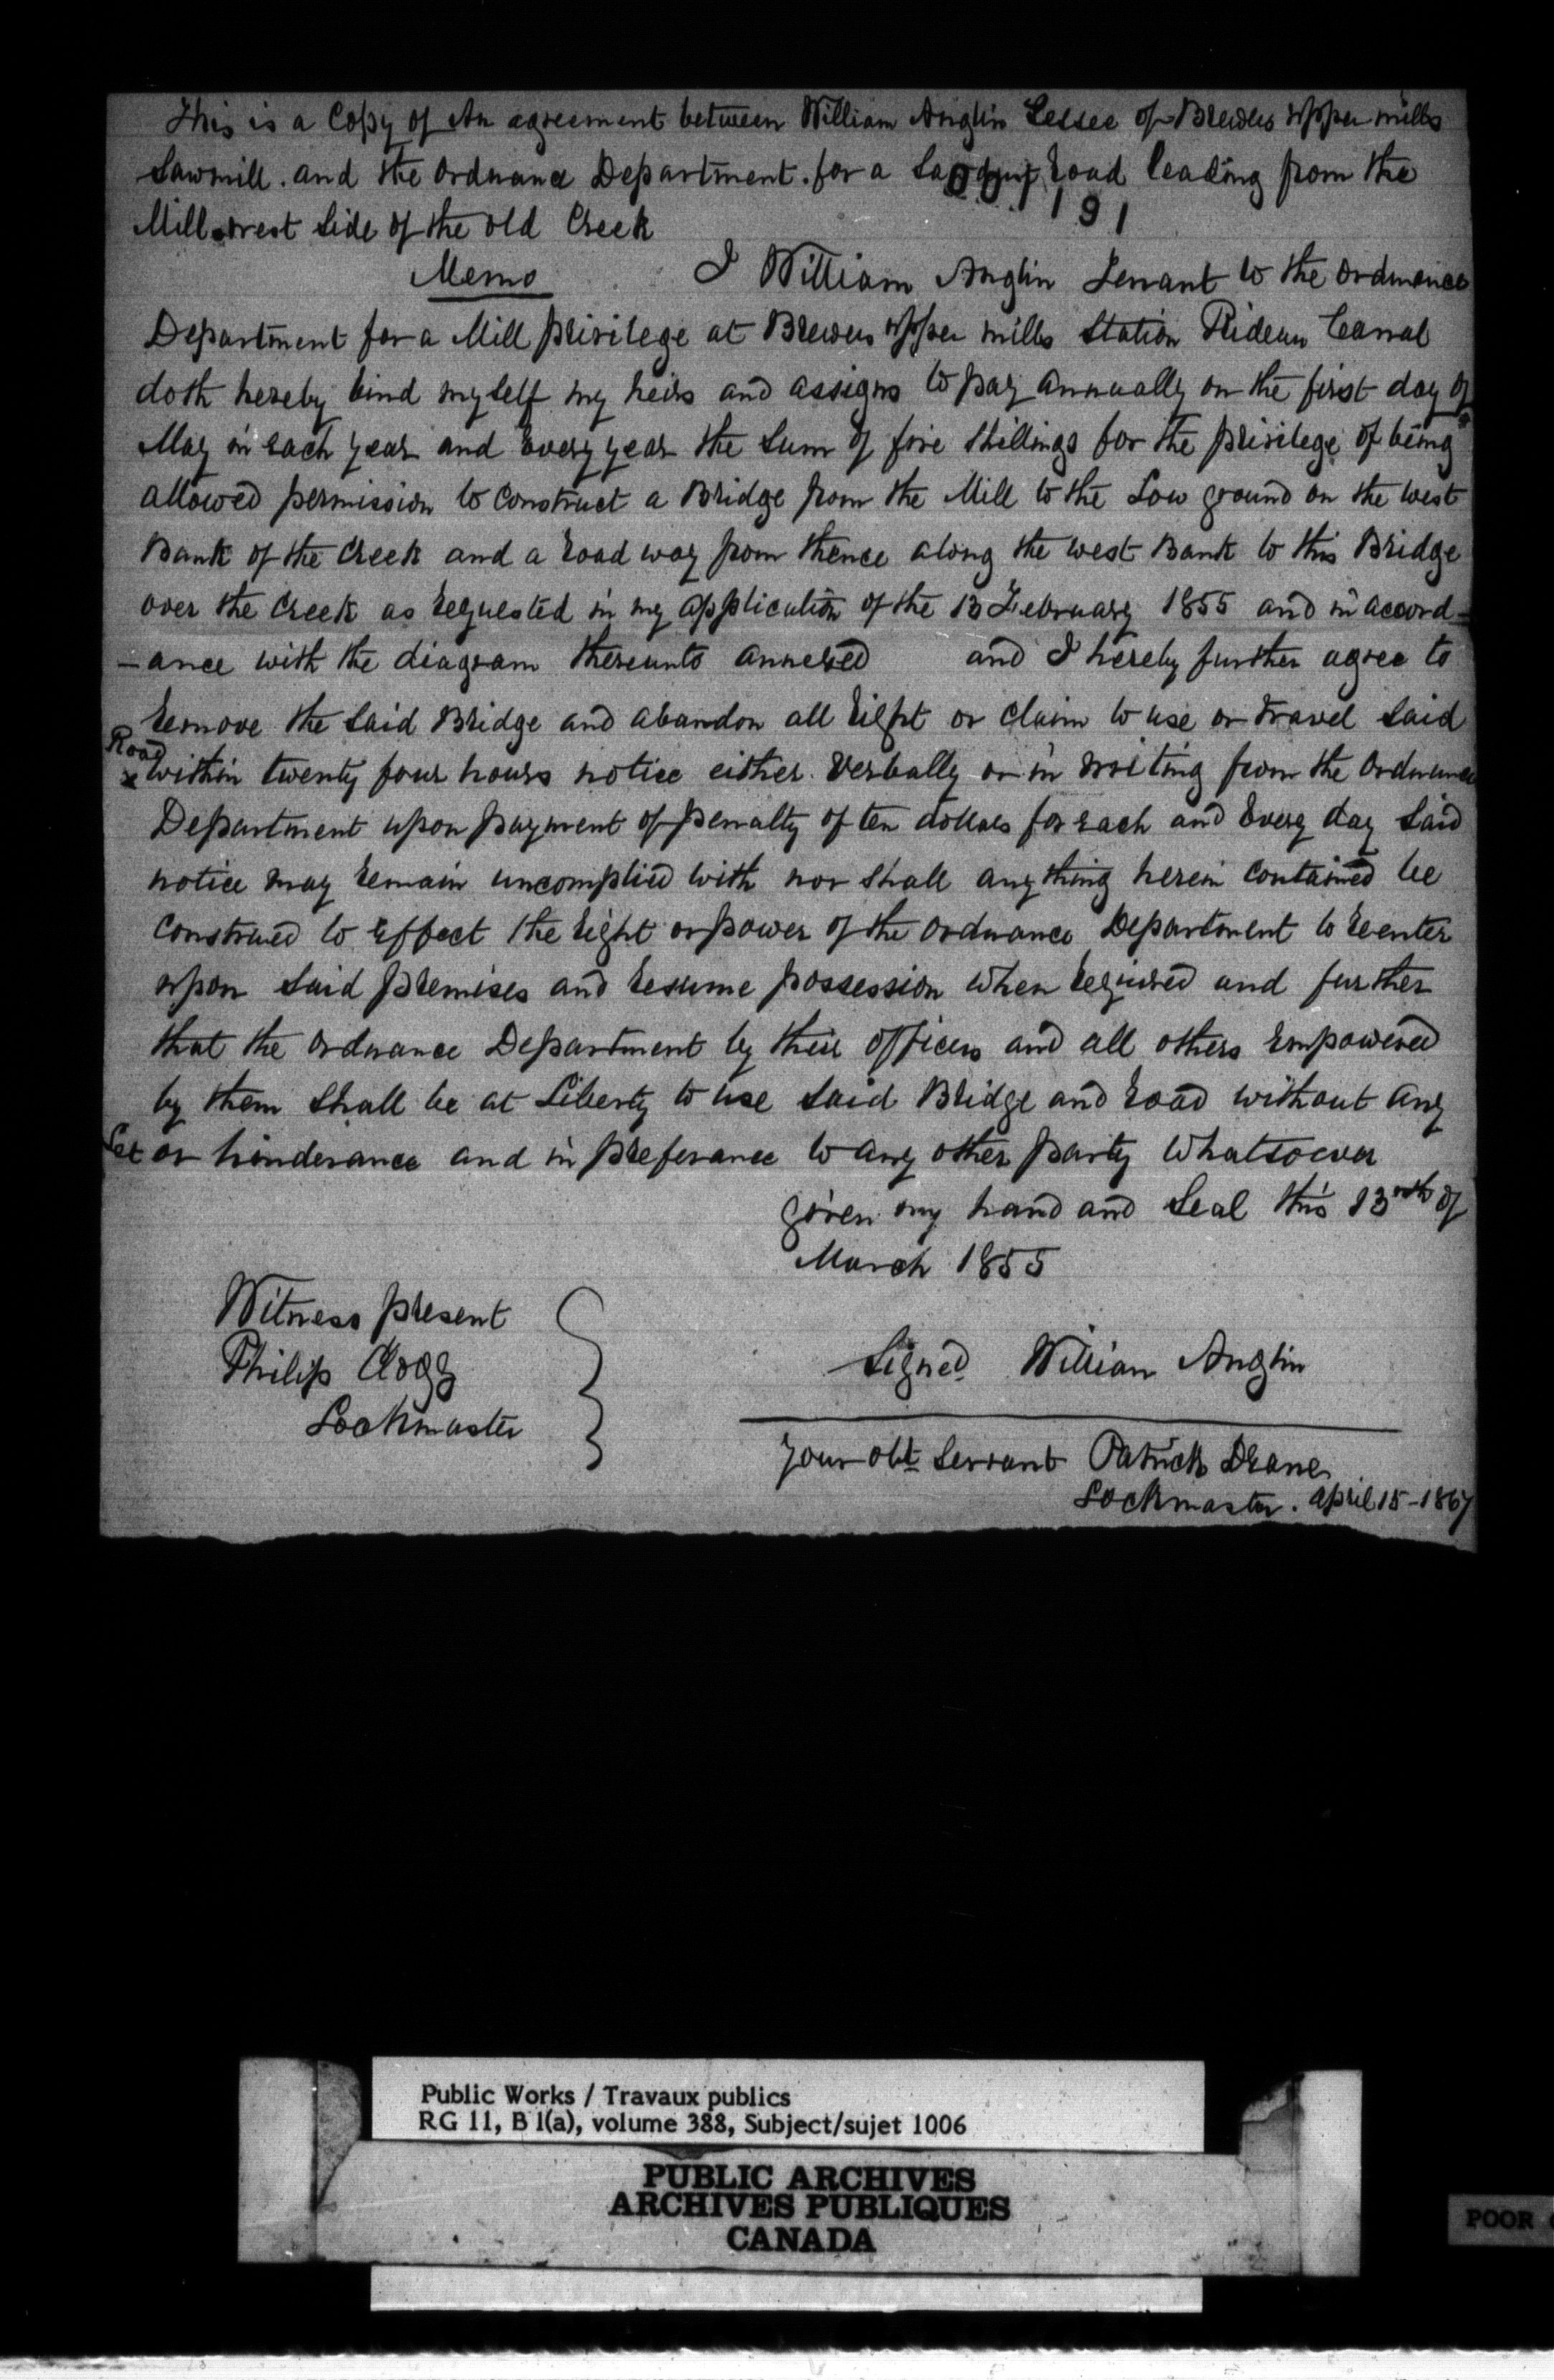 This is a Copy of An agreement between William Anglin Lessee of Brewers upper mills
Sawmill. and the Ordnance Department. for a Road leading from the
001191
Mill. west Side of the old Creek
Memo I William Anglin Tenant to the Ordnance
Department for a Mill privilege at Brewers upper mills Station Rideau Canal
doth hereby bind myself my heirs and assigns to pay annually on the first day of
May in each year and every year the Sum of five Shillings for the privilege of being
allowed permission to Construct a Bridge from the Mill to the Low ground on the west
Bank of the Creek and a Road way from thence along the west Bank to this Bridge
over the Creek as Requested in my application of the 13 February 1855 and in accord-
-ance with the diagram thereunto annexed and I hereby further agree to
Remove the Said Bridge and abandon all Right or Claim to use or travel Said
Road
x within twenty four hours notice either. Verbally or in writing from the Ordnance
Department upon payment of penalty of ten dollars for each and Every day Said
notice may Remain uncomplied with nor Shall any thing herein Contained be
Construed to Effect the Right or power of the Ordnance Department to Reenter
upon Said premises and Resume possession when Required and further
that the Ordnance Department by their officers and all others Empowered
by them Shall be at Liberty to use Said Bridge and Road without any
Let or hinderance and in preferance to any other party Whatsoever
given my hand and Seal this 13th of
March 1855
Witness present
Philip Clogg
Lockmaster
Signed William Anglin
your obt Servant Patrick Deane
Lockmaster. April 15-1867
Public Works / Travaux publics
RG 11, B 1(a), volume 388, Subject/sujet 1006
PUBLIC ARCHIVES
ARCHIVES PUBLIQUES
CANADA
POOR